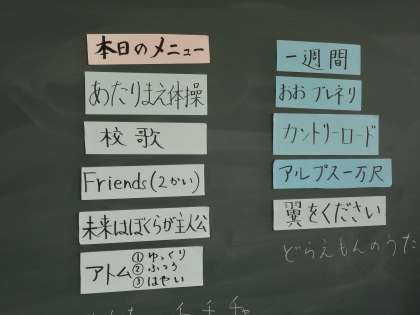 本日のメニュー
あたりまえ体操
校歌
Friends(2かい)
未来はぼくらが主人公
アトム
①ゆっくり
②ふつう
③はやい
一週間
おおブレネリ
カントリーロード
アルプス一万尺
翼をください
どらえもんのうた